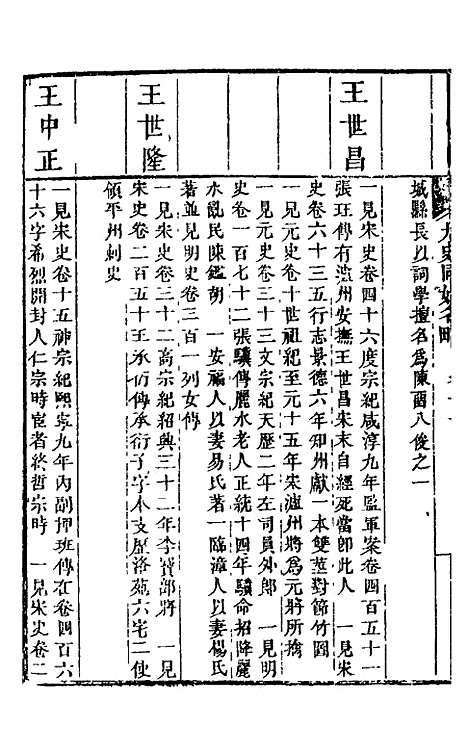 九史同姓名略
城縣長以詞學擅名為陳留八俊之一
王世昌
一見宋史卷四十六度宗紀咸淳九年監軍案卷四百五十一
張珏傳有瀘州安撫王世昌宋末自經死當卽此人　一見宋
史卷六十三五行志景德六年知州獻一本雙莖對節竹圖
一見元史卷十世祖紀至元十五年宋瀘州將為元將所擒
一見元史卷三十三文宗紀天歷二年左司員外郎　一見明
史卷一百七十二張驥傳麗水老人正統十四年驥命招降麗
水亂民陳鑑胡　一安福人以妻易氏著一臨漳人以妻楊氏
著並見明史卷三百一列女傳
王世隆
一見宋史卷三十二高宗紀紹興三十二年李寶部將　一見
宋史卷二百五十王承衍傳承衍子字本支歷洛苑六宅二使
領平州刺史
王中正
一見宋史卷十五神宗紀熙寧九年內副押班傳在卷四百六
十六字希烈開封人仁宗時宦者終哲宗時　一見宋史卷二